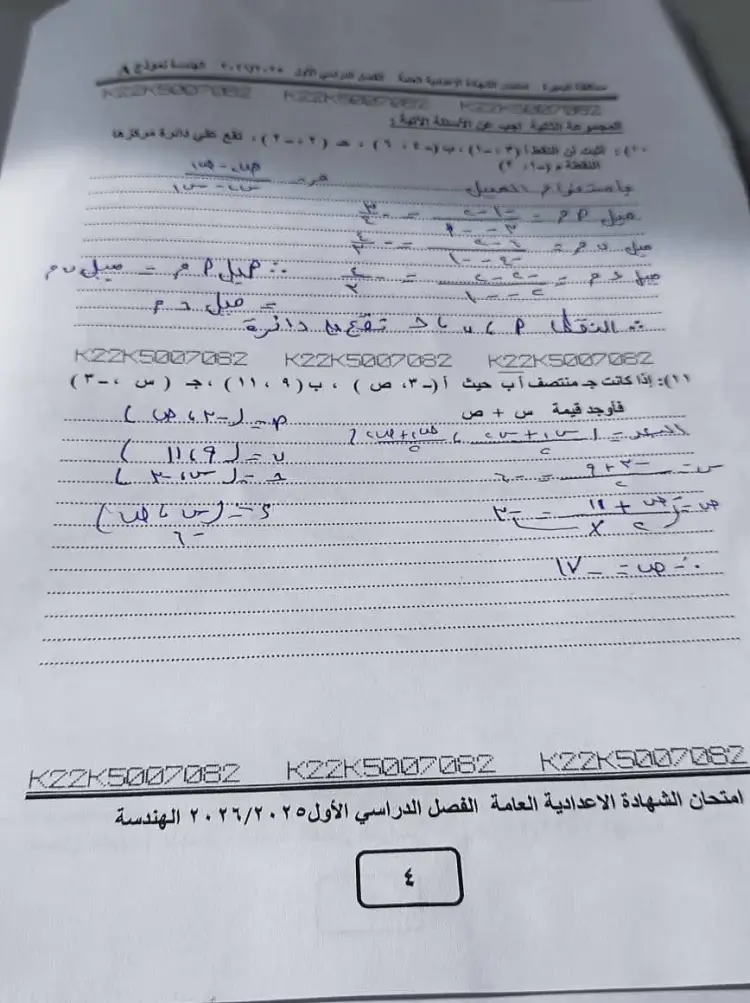 محافظة البحيرة امتحان الشهادة الإعدادية العامة الفصل الدراسي الأول ٢٠٢٦/٢٠٢٥ الهندسة نموذج
K22K5007082 K22K5007082 K22K5007082
المجموعة الثانية أجب عن الأسئلة الآتية :
١٠): أثبت أن النقط أ (٣ ، -١) ، ب (-٤ ، ٦) ، جـ (٢ ، -٢) ، تقع على دائرة مركزها
النقطة م (-١ ، ٢)
باستخدام الميل م = ص٢ - ص١ / س٢ - س١
ميل م أ = -١ - ٢ / ٣ - -١ = - ٣/٤
ميل ب م =
ميل جـ م = -٢ - ٢ / ٢ - -١ = ∴ ميل أ م = ميل ب م
= ميل جـ م
∴ النقط أ ، ب ، جـ تقع دائرة
K22K5007082 K22K5007082 K22K5007082
١١): إذا كانت جـ منتصف أ ب حيث أ (-٣، ص) ، ب (٩ ، ١١) ، جـ ( س ، -٣ )
فأوجد قيمة س + ص
أ = (-٣ ، ص)
= ( س١ + س٢ / ٢ ، ص١ + ص٢ / ٢ )
ب = (٩ ، ١١)
س = -٣ + ٩ / ٢ =
جـ = (س ، -٣)
ص = ص + ١١ / ٢ = -٣
= (س ، ص)
∴ ص = -١٧
K22K5007082 K22K5007082 K22K5007082
امتحان الشهادة الاعدادية العامة الفصل الدراسي الأول ٢٠٢٦/٢٠٢٥ الهندسة
٤